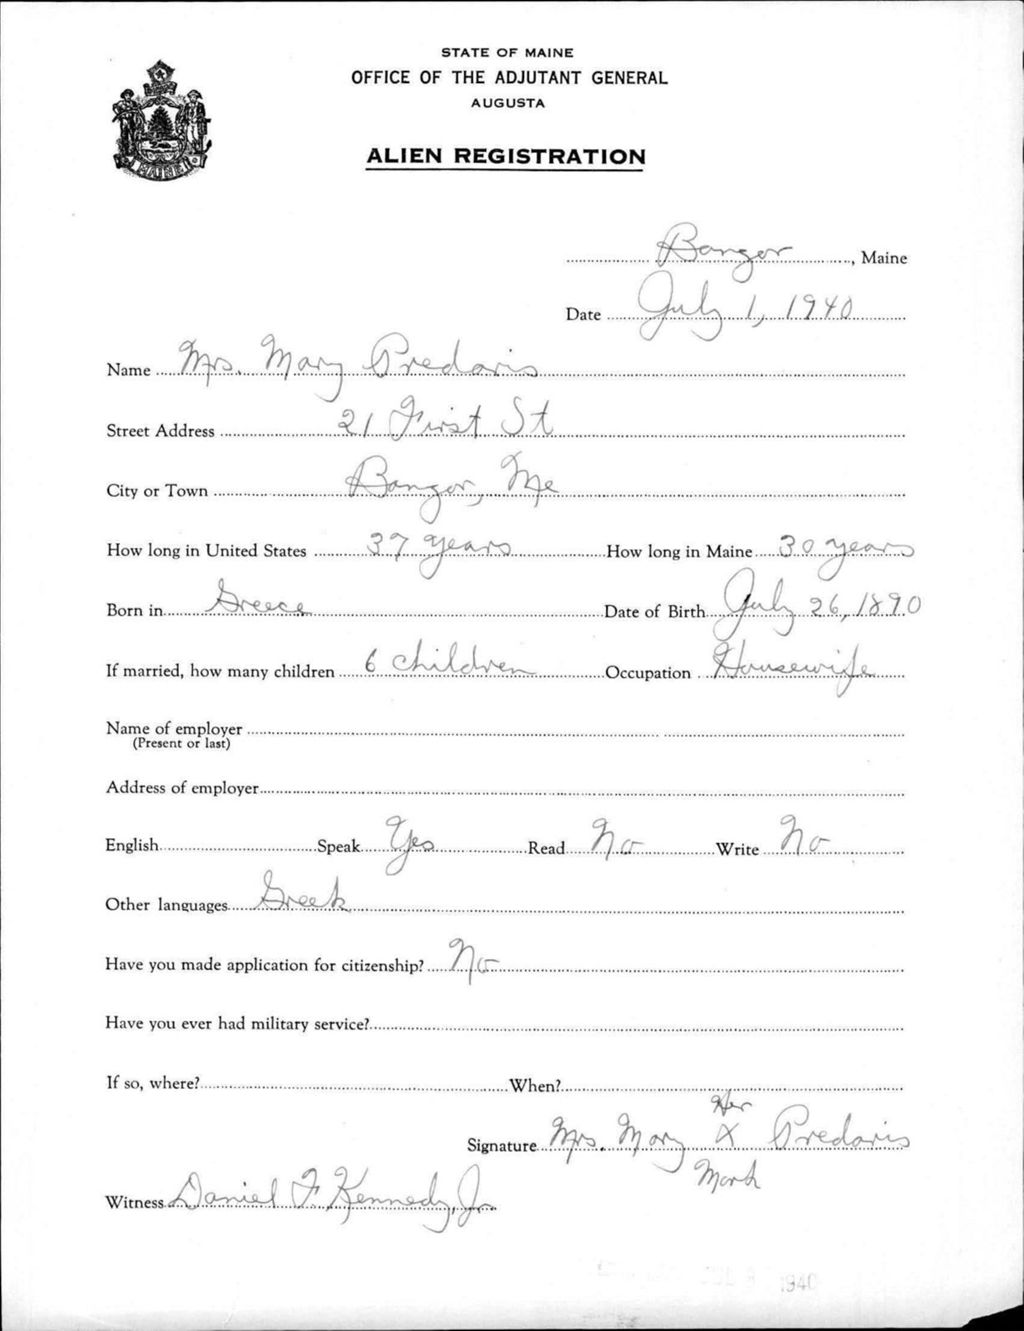 STATE OF MAINE
OFFICE OF THE ADJUTANT GENERAL
AUGUSTA
ALIEN REGISTRATION
MAINE
Bangor, Maine
Date July 1, 1940
Name Mrs. Mary Predaris
Street Address 21 First St
City or Town Bangor, Me
How long in United States 37 years How long in Maine 30 years
Born in Greece Date of Birth July 26, 1890
If married, how many children 6 children Occupation Housewife
Name of employer
(Present or last)
Address of employer
English Speak Yes Read No Write No
Other languages Greek
Have you made application for citizenship? No
Have you ever had military service?
If so, where? When?
Her
Signature Mrs. Mary X Predaris
Mark
Witness Daniel F. Kennedy, Jr.